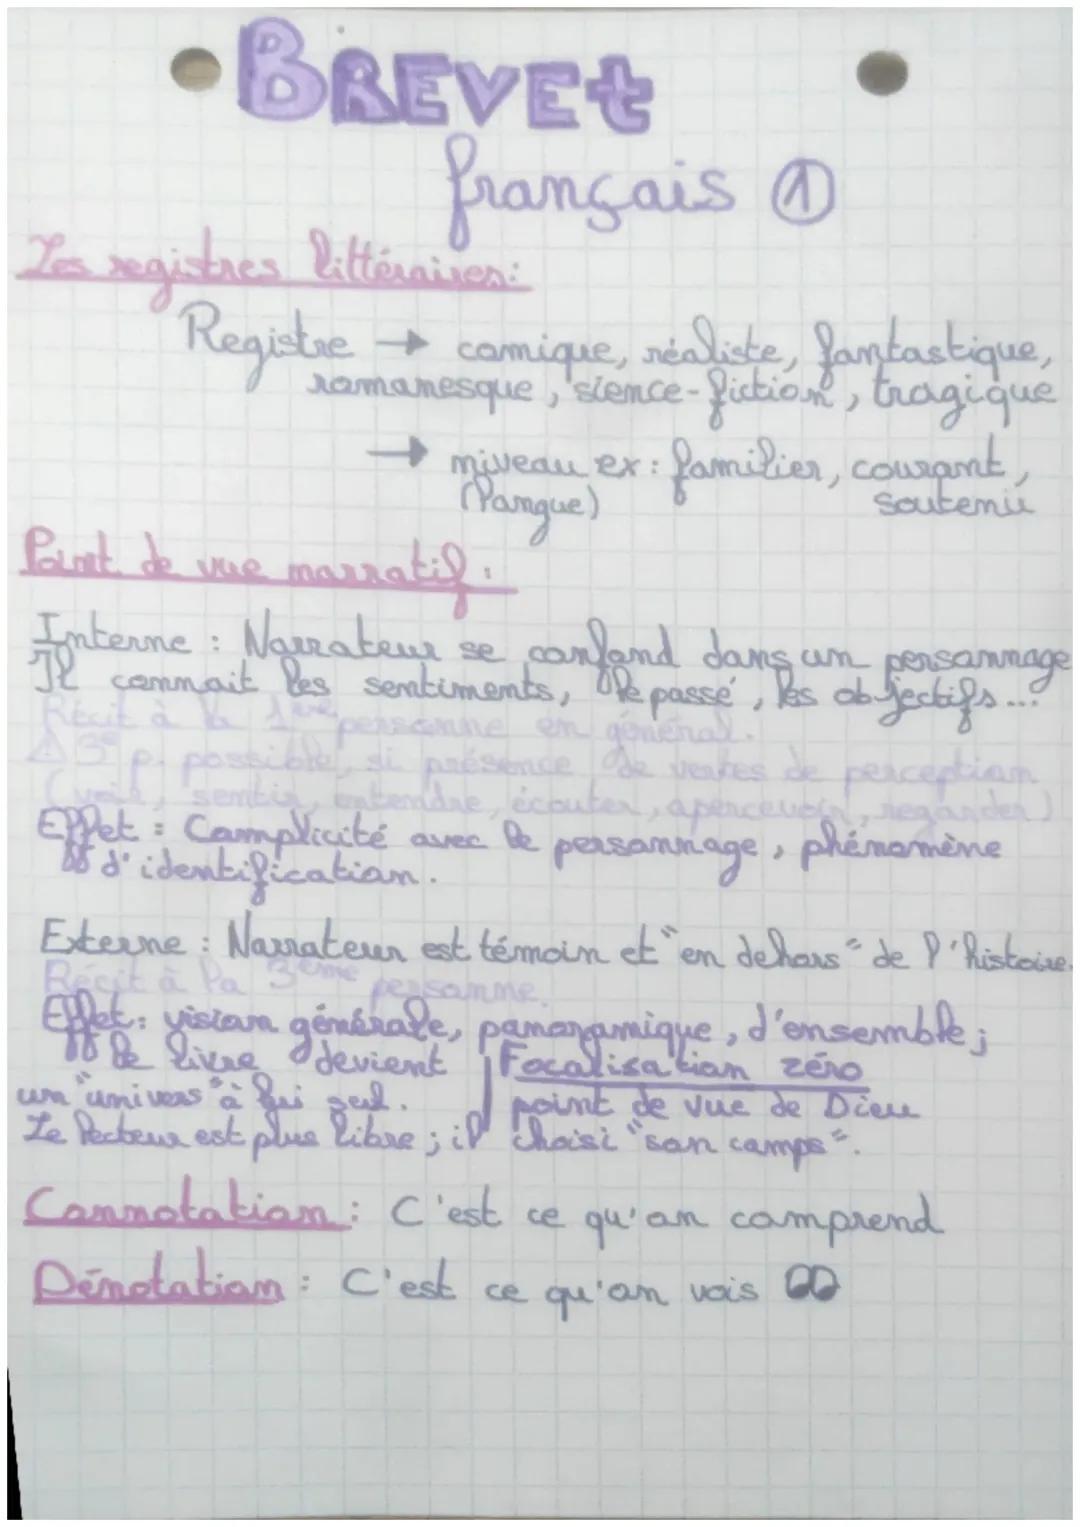 BREVEt
français ①
Les registres littéraires:
Registre → comique, réaliste, fantastique,
romanesque, sience-fiction, tragique
→ niveau ex: familier, courant,
(langue) soutenu
Point de vue narratif:
Interne : Narrateur se confond dans un personnage
Il connait les sentiments, le passé, les objectifs...
Récit à la 1ère personne en général.
⚠ 3e p. possible, si présence de verbes de perception
(voir, sentir, entendre, écouter, apercevoir, regarder)
Effet : Complicité avec le personnage, phénomène
d'identification.
Externe : Narrateur est témoin et "en dehors" de l'histoire.
Récit à la 3ème personne.
Effet: vision générale, panoramique, d'ensemble;
le livre devient | Focalisation zéro
un "univers" à lui seul. | point de vue de Dieu
Le lecteur est plus libre; il choisi "son camps".
Connotation : C'est ce qu'on comprend
Dénotation : C'est ce qu'on vois